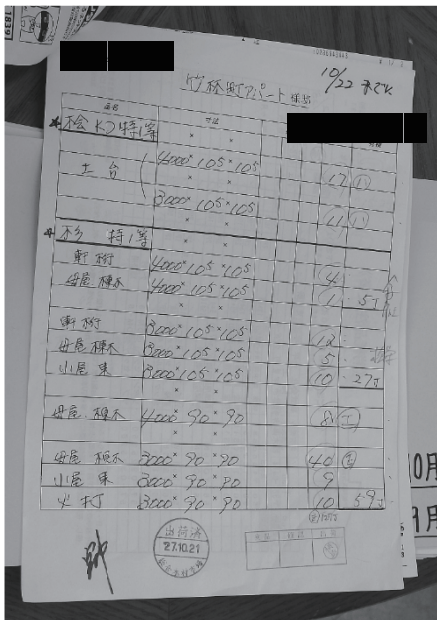 10/22
竹林町アパート
品名 寸法
桧KD特1等
土台 4000×105×105 17
3000×105×105 11
杉 特1等
軒桁 4000×105×105 4
母屋 棟木 4000×105×105 1 5丁
軒桁 3000×105×105 12
母屋 棟木 3000×105×105 5
小屋束 3000×105×105 10 27丁
母屋 棟木 4000×90×90 8
母屋 棟木 3000×90×90 40
小屋束 3000×90×90 9
火打 3000×90×90 10 59丁
出荷済
27.10.21
10月
9月
1839